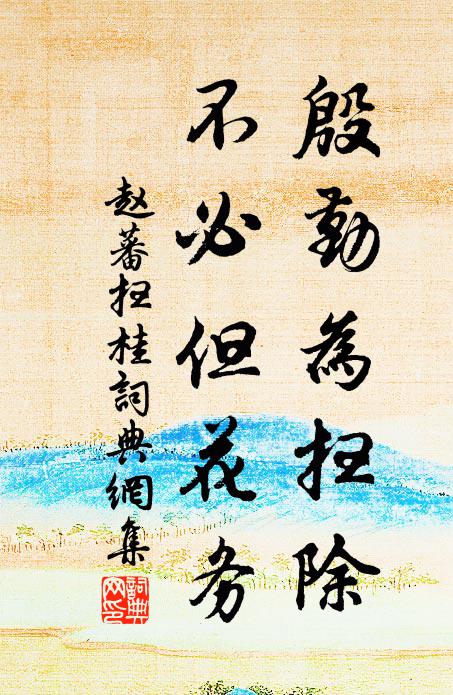 殷勤為扫除
不必但花务
赵蕃扫桂詞典網集
詞典网印